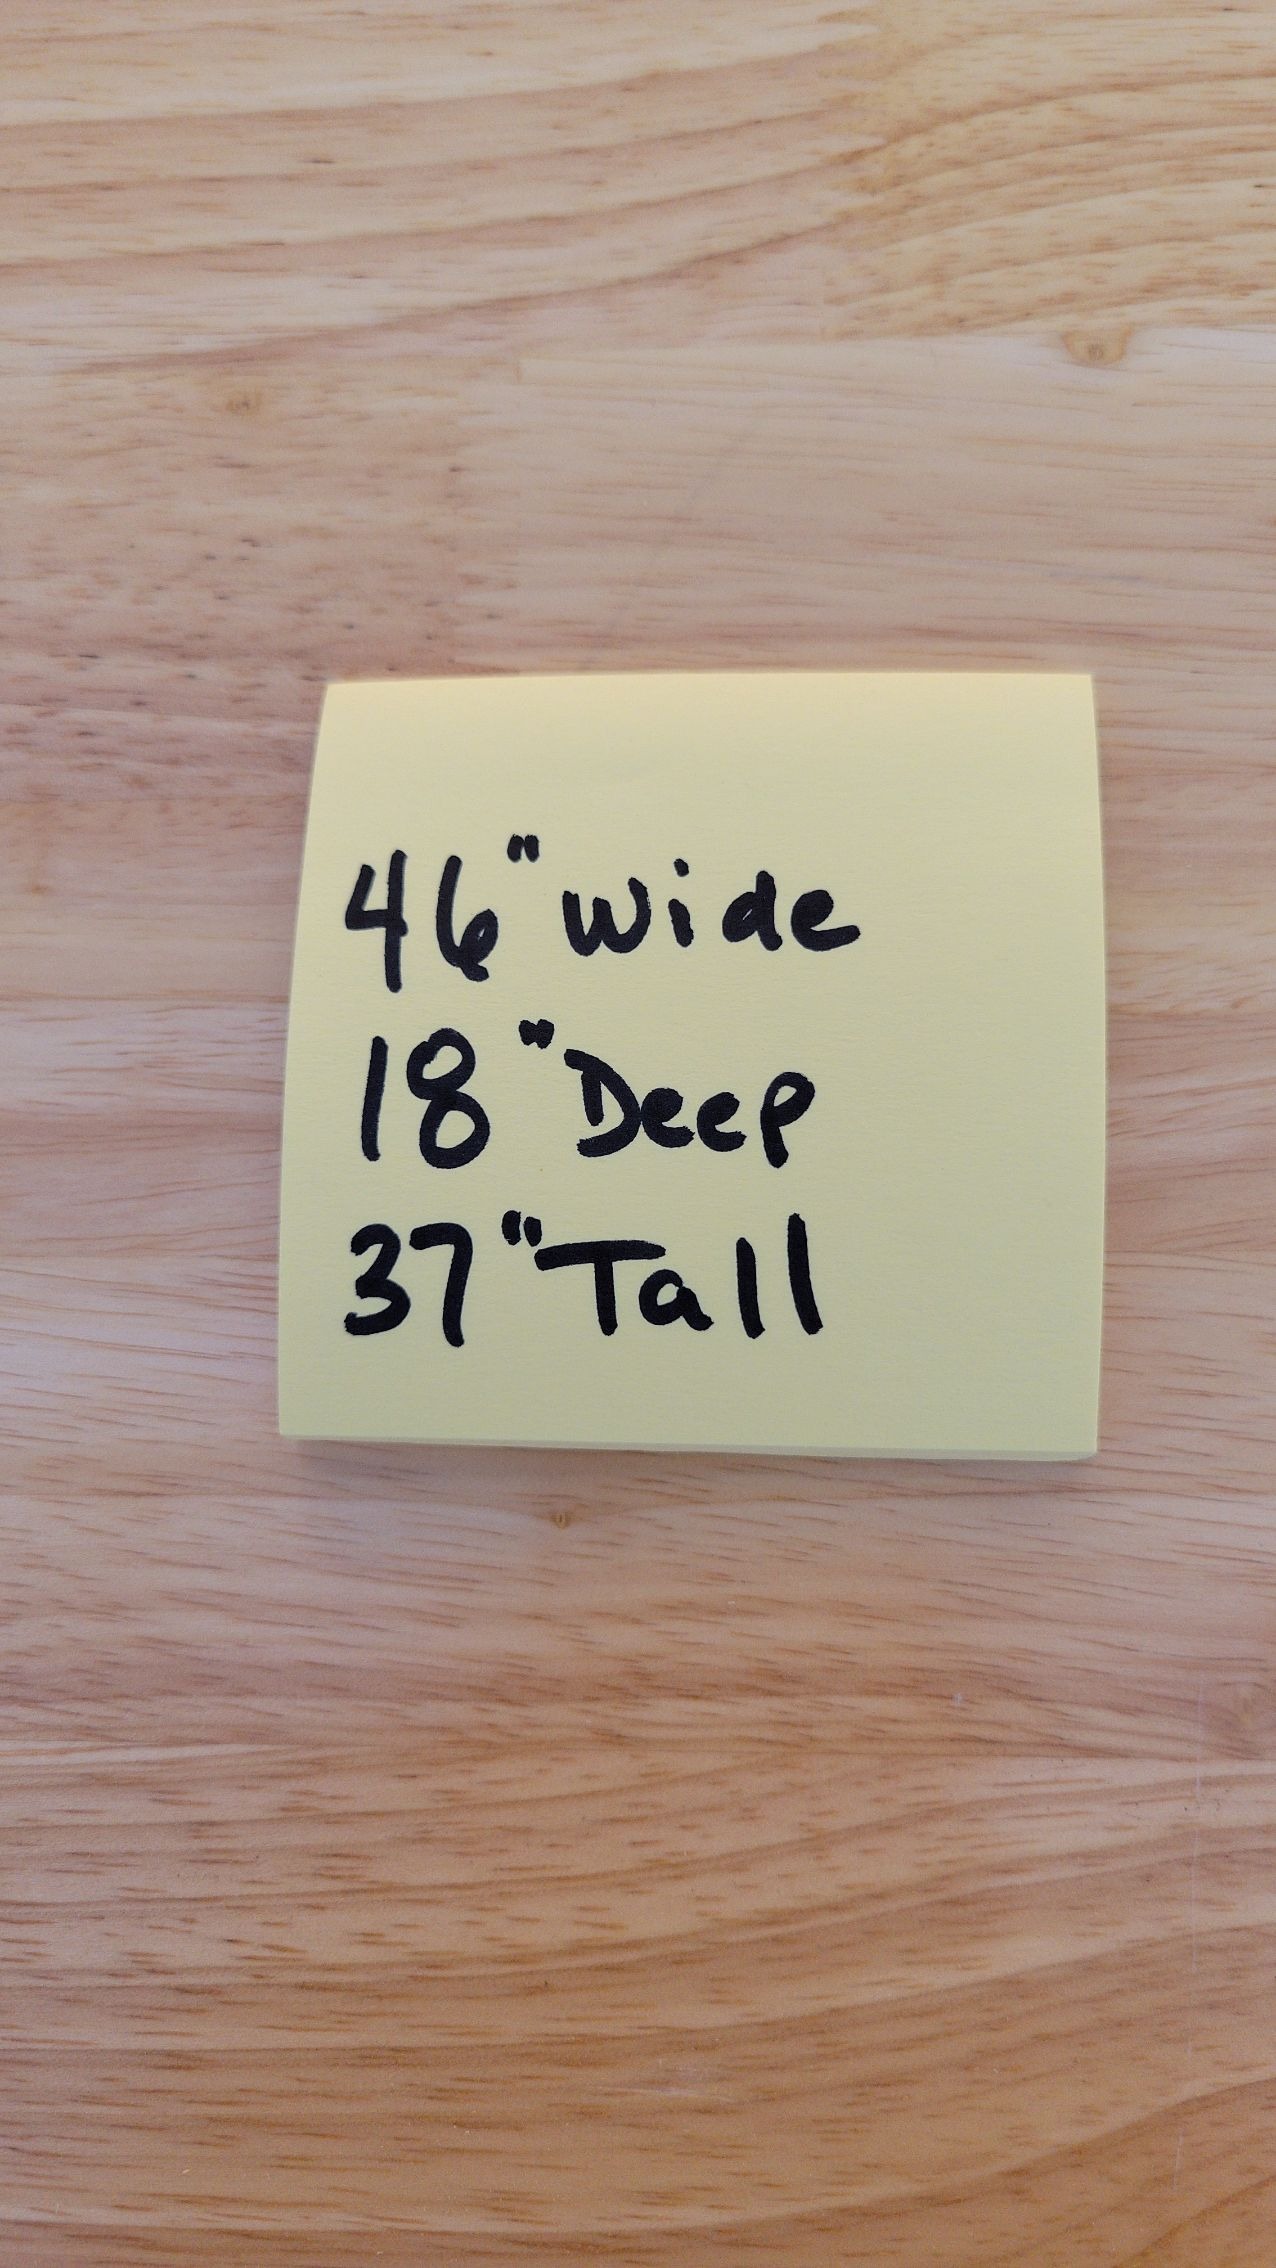 46" wide
18" Deep
37" Tall